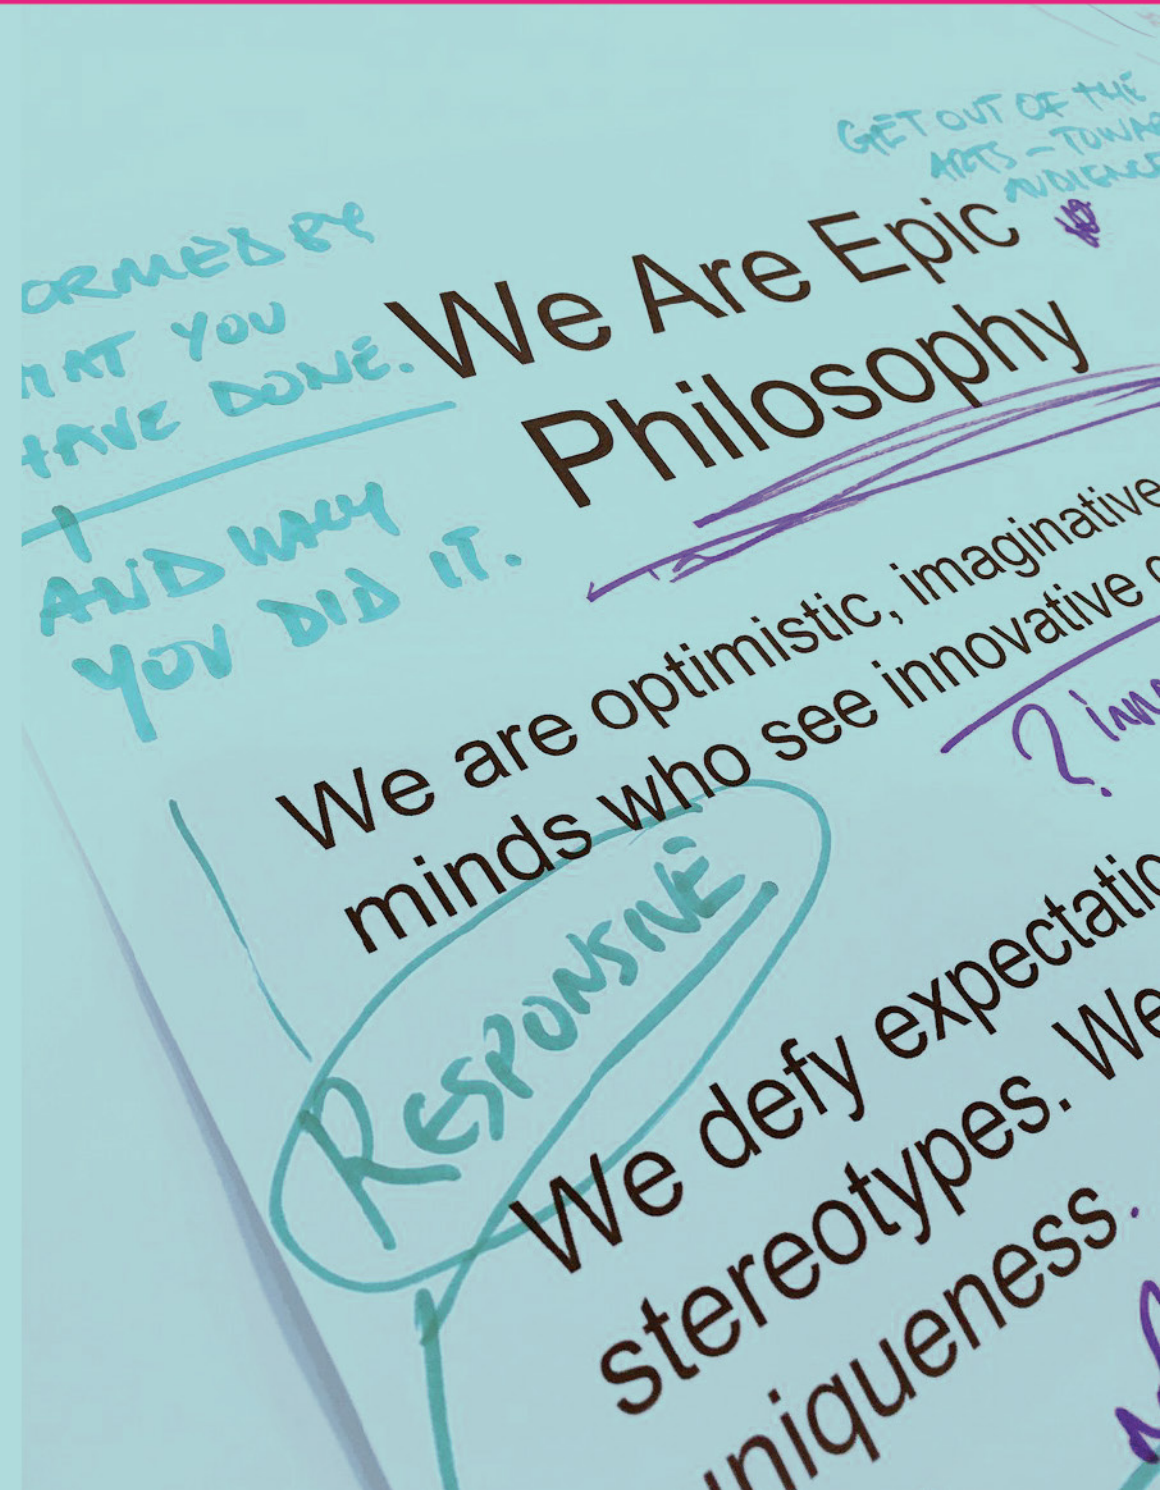 GET OUT OF THE
ARTS – TOWA
AUDIENCE
ORMED BY
HAT YOU
HAVE DONE.
AND WHY
YOU DID IT.
We Are Epic
Philosophy
We are optimistic, imaginative
minds who see innovative
? inn
RESPONSIVE
We defy expectatio
stereotypes. We
uniqueness.